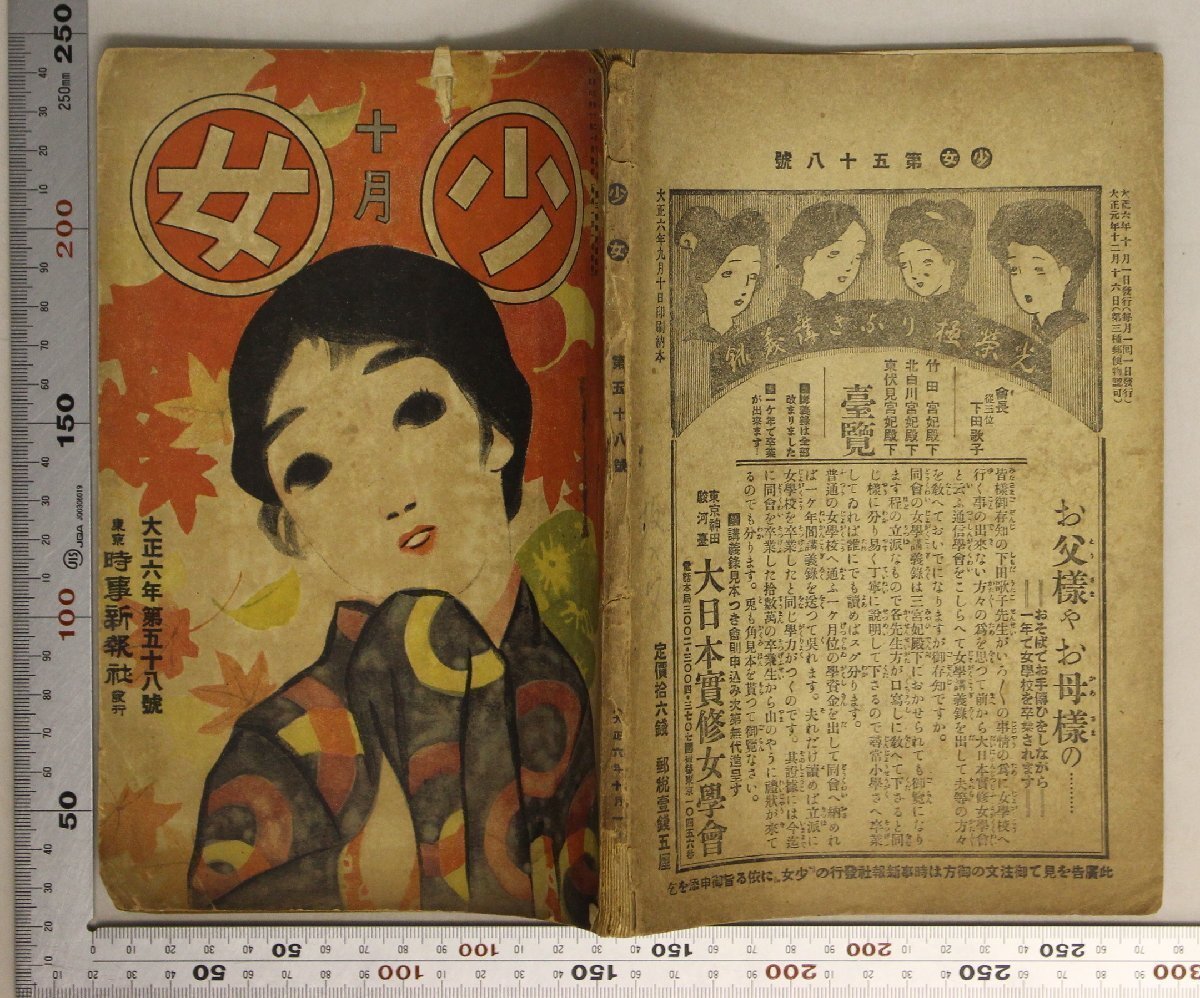 少女
十月
大正六年第五十八號
東京 時事新報社 發行
少女 第五十八號
少女第五十八號
大正六年十月一日發行(毎月一回一日發行)
大正元年十二月十六日(第三種郵便物認可)
大正六年九月十日印刷納本
光榮極りふき講義錄
會長
從三位
下田歌子
竹田宮妃殿下
北白川宮妃殿下
東伏見宮妃殿下
臺覽
講義錄は全部
改まりました
一ケ年で卒業
が出來ます
お父樣やお母樣の………
おそばでお手傳ひをしながら
一年で女學校を卒業されます
皆樣御存知の下田歌子先生がいろ〱の事情の爲に女學校へ
行く事の出來ない方々の爲を思つて前から大日本實修女學會
と云ふ通信學會をこしらへて女學講義錄を出して夫等の方々
を敎へておいでになりますが御存知ですか。
同會の女學講義錄は三宮妃殿下におかせられても御覽になり
ます程の立派なもので各先生方が口寫しに敎へて下さると同
じ樣に分り易く丁寧に說明して下さるので尋常小學さへ卒業
してゐれば誰にでも讀めばスグ分ります。
普通の女學校へ通ふ一ヶ月位の學資金を出して同會へ納めれ
ば一ヶ年間講義錄を送つて吳れます。夫れだけ讀めば立派に
女學校を卒業したと同じ學力がつくのです。其證據には今迄
に同會を卒業した拾數萬の卒業生から山のやうに禮狀が來て
るのでも分ります。兎も角見本を貰つて御覽なさい。
講義錄見本つき會則申込み次第無代進呈す
東京神田
駿河臺
大日本實修女學會
定價拾六錢 郵稅壹錢五厘
此廣告を見て御注文の御方は時事新報社發行の「少女」に依る旨御申添を乞
JIS
JQA
JQ0306019
250mm